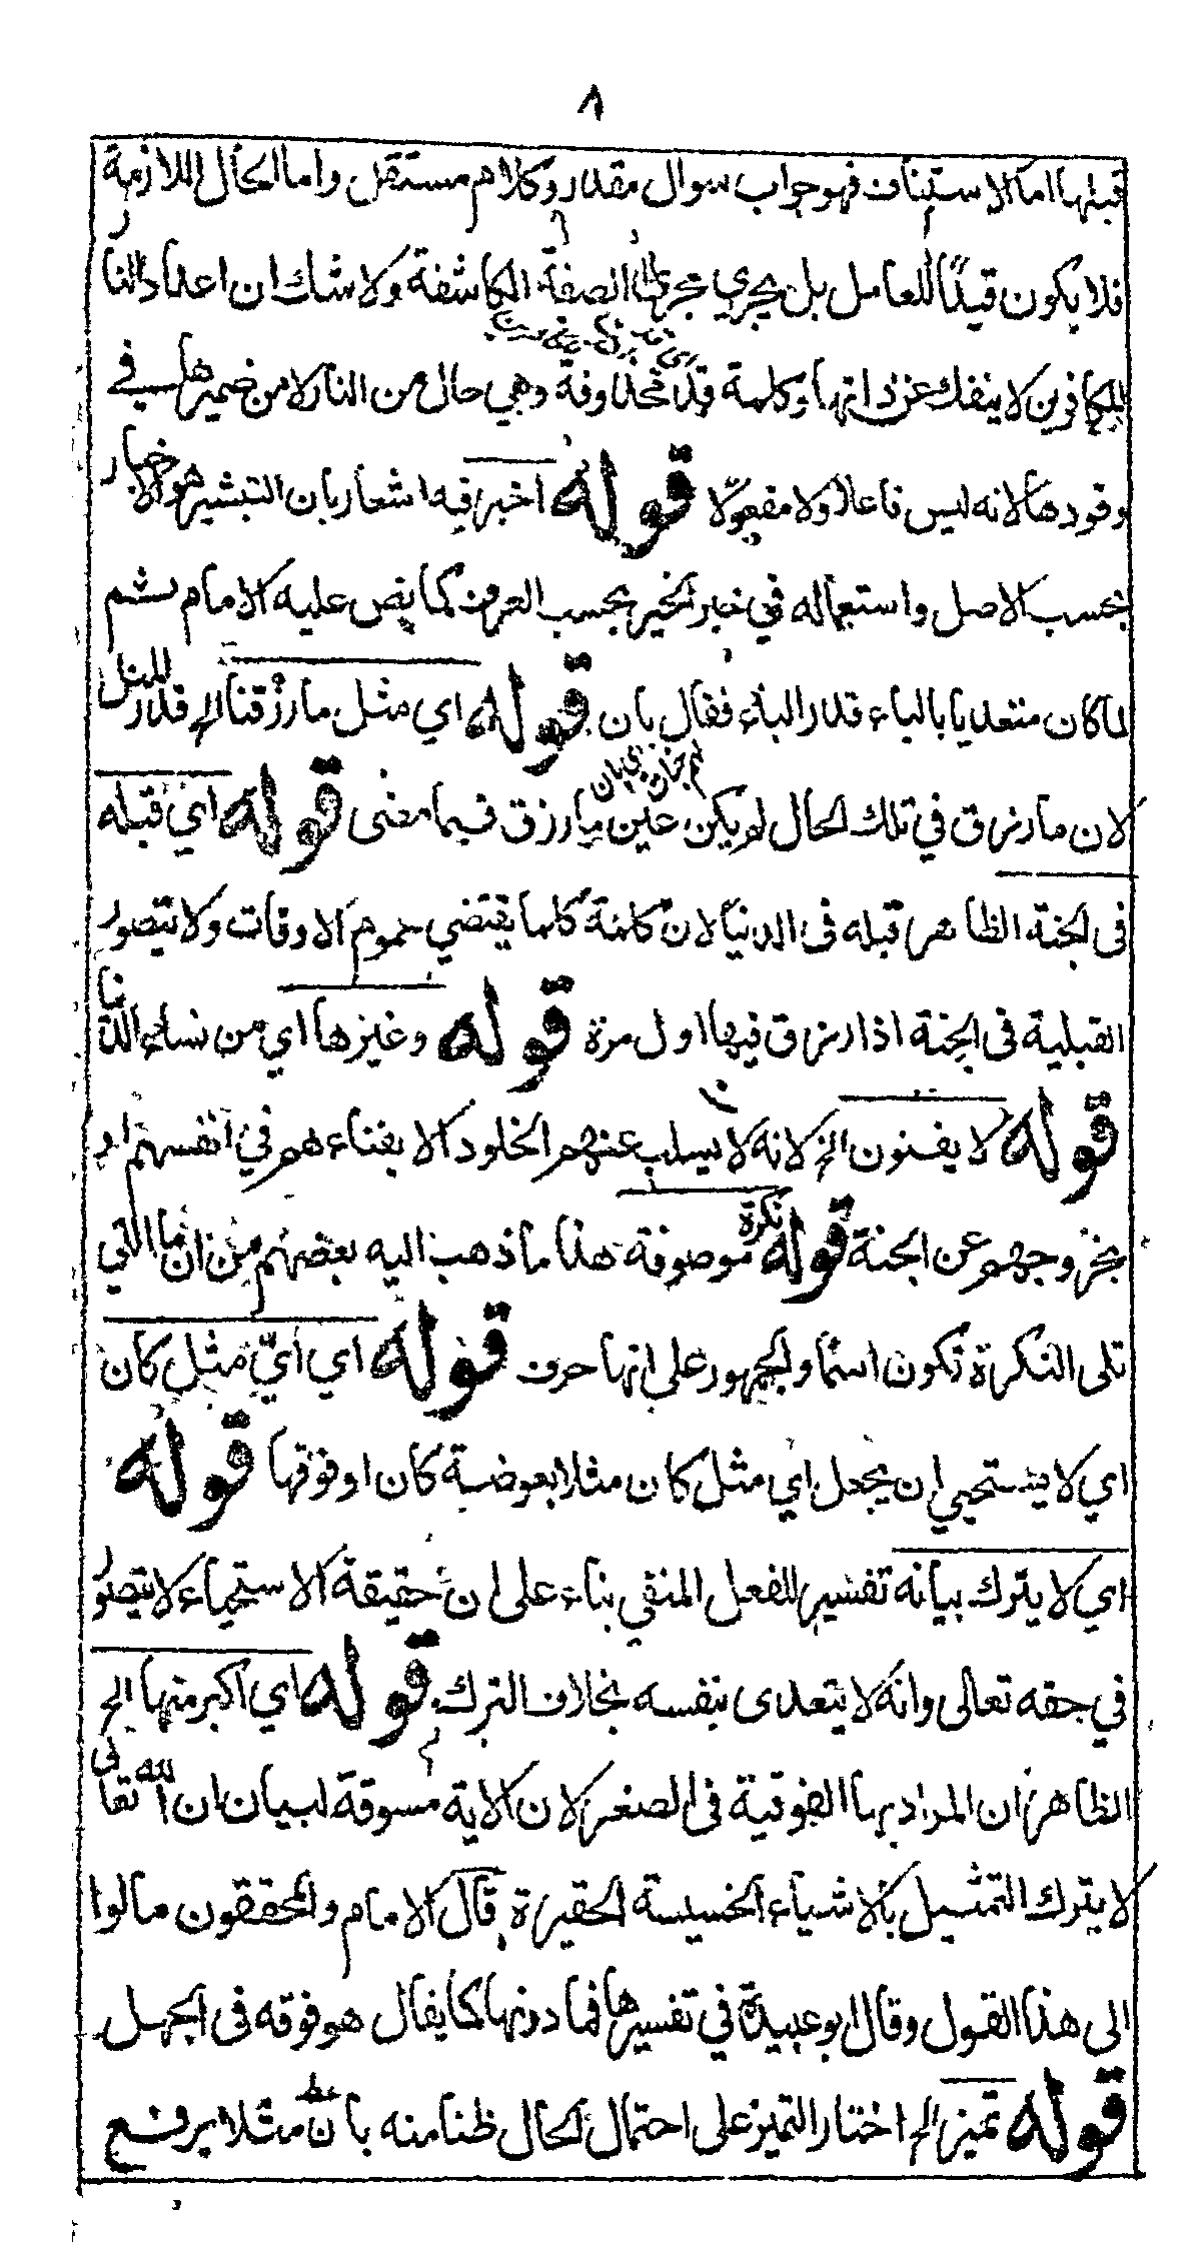 ٨
قبلها اما الاستيناف فهو جواب سوال مقدر وكلام مستقل واما الحال اللازمة
فلا يكون قيدًا للعامل بل يجري مجرى الصفة الكاشفة ولا شك ان اعداد النا
للكافرين لا ينفك عن ذاتها وكلمة قد محذوفة وهي حال من النار لا من ضميرها في
وقودها لانه ليس فاعلا ولا مفعولا قوله اخبر فيه اشعار بان التبشير هو الاخبار
بحسب الاصل واستعماله في خبر الخير بحسب العرف كما نص عليه الامام ثم
لما كان متعديا بالباء قدر الباء فقال بان قوله اي مثل ما رزقنا الخ قدر المثل
لان ما رزق في تلك الحال لم يكن عين ما رزق فيما مضى قوله اي قبله
فى الجنة الظاهر قبله فى الدنيا لان كلمة كلما يقتضي عموم الاوقات ولا يتصور
القبلية فى الجنة اذا رزق فيها اول مرة قوله وغيرها اي من نساء الدنيا
قوله لا يفنون الخ لانه لا يسلب عنهم الخلود الا بفناء هم في انفسهم او
بخروجهم عن الجنة قوله نكرة موصوفة هذا ما ذهب اليه بعضهم من ان ما التي
تلى النكرة تكون اسما والجمهور على انها حرف قوله اي ايّ مثل كان
اي لا يستحيي ان يجعل اي مثل كان مثلا بعوضة كان او فوقها قوله
اي لا يترك بيانه تفسير للفعل المنفي بناء على ان حقيقة الاستحياء لا يتصور
في حقه تعالى وانه لا يتعدى بنفسه بخلاف الترك قوله اي اكبر منها الخ
الظاهر ان المراد بها الفوقية فى الصغر لان الاية مسوقة لبيان ان الله تعالى
لا يترك التمثيل بالاشياء الخسيسة الحقيرة قال الامام والمحققون مالوا
الى هذا القول وقال ابو عبيدة في تفسيرها فما دونها كما يقال هو فوقه فى الجهل
قوله تميز الخ اختار التميز على احتمال الحال ظنا منه بان مثلا يرفع